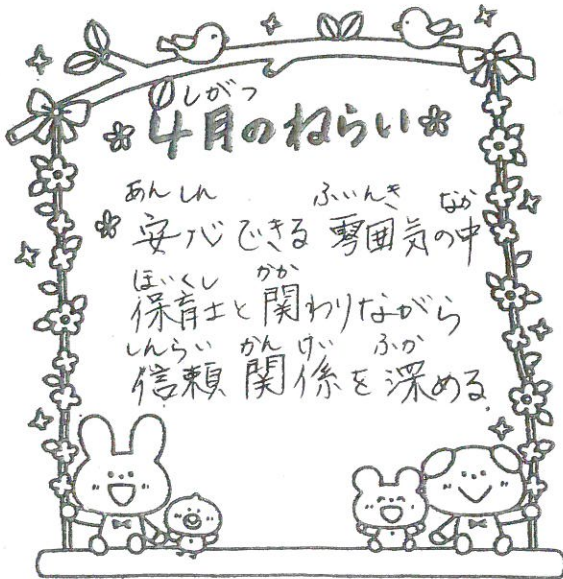 しがつ
4月のねらい
あんしん ふいんき なか
安心できる 雰囲気の中
ほいくし かか
保育士と関わりながら
しんらい かんけい ふか
信頼関係を深める